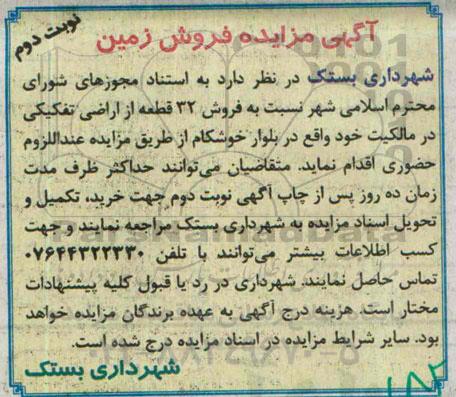 نوبت دوم
آگهی مزایده فروش زمین
شهرداری بستک در نظر دارد به استناد مجوزهای شورای
محترم اسلامی شهر نسبت به فروش ۳۲ قطعه از اراضی تفکیکی
در مالکیت خود واقع در بلوار خوشکام از طریق مزایده عنداللزوم
حضوری اقدام نماید. متقاضیان می‌توانند حداکثر ظرف مدت
زمان ده روز پس از چاپ آگهی نوبت دوم جهت خرید، تکمیل و
تحویل اسناد مزایده به شهرداری بستک مراجعه نمایند و جهت
کسب اطلاعات بیشتر می‌توانند با تلفن ۰۷۶۴۴۳۲۲۳۳۰
تماس حاصل نمایند. شهرداری در رد یا قبول کلیه پیشنهادات
مختار است. هزینه درج آگهی به عهده برندگان مزایده خواهد
بود. سایر شرایط مزایده در اسناد مزایده درج شده است.
شهرداری بستک